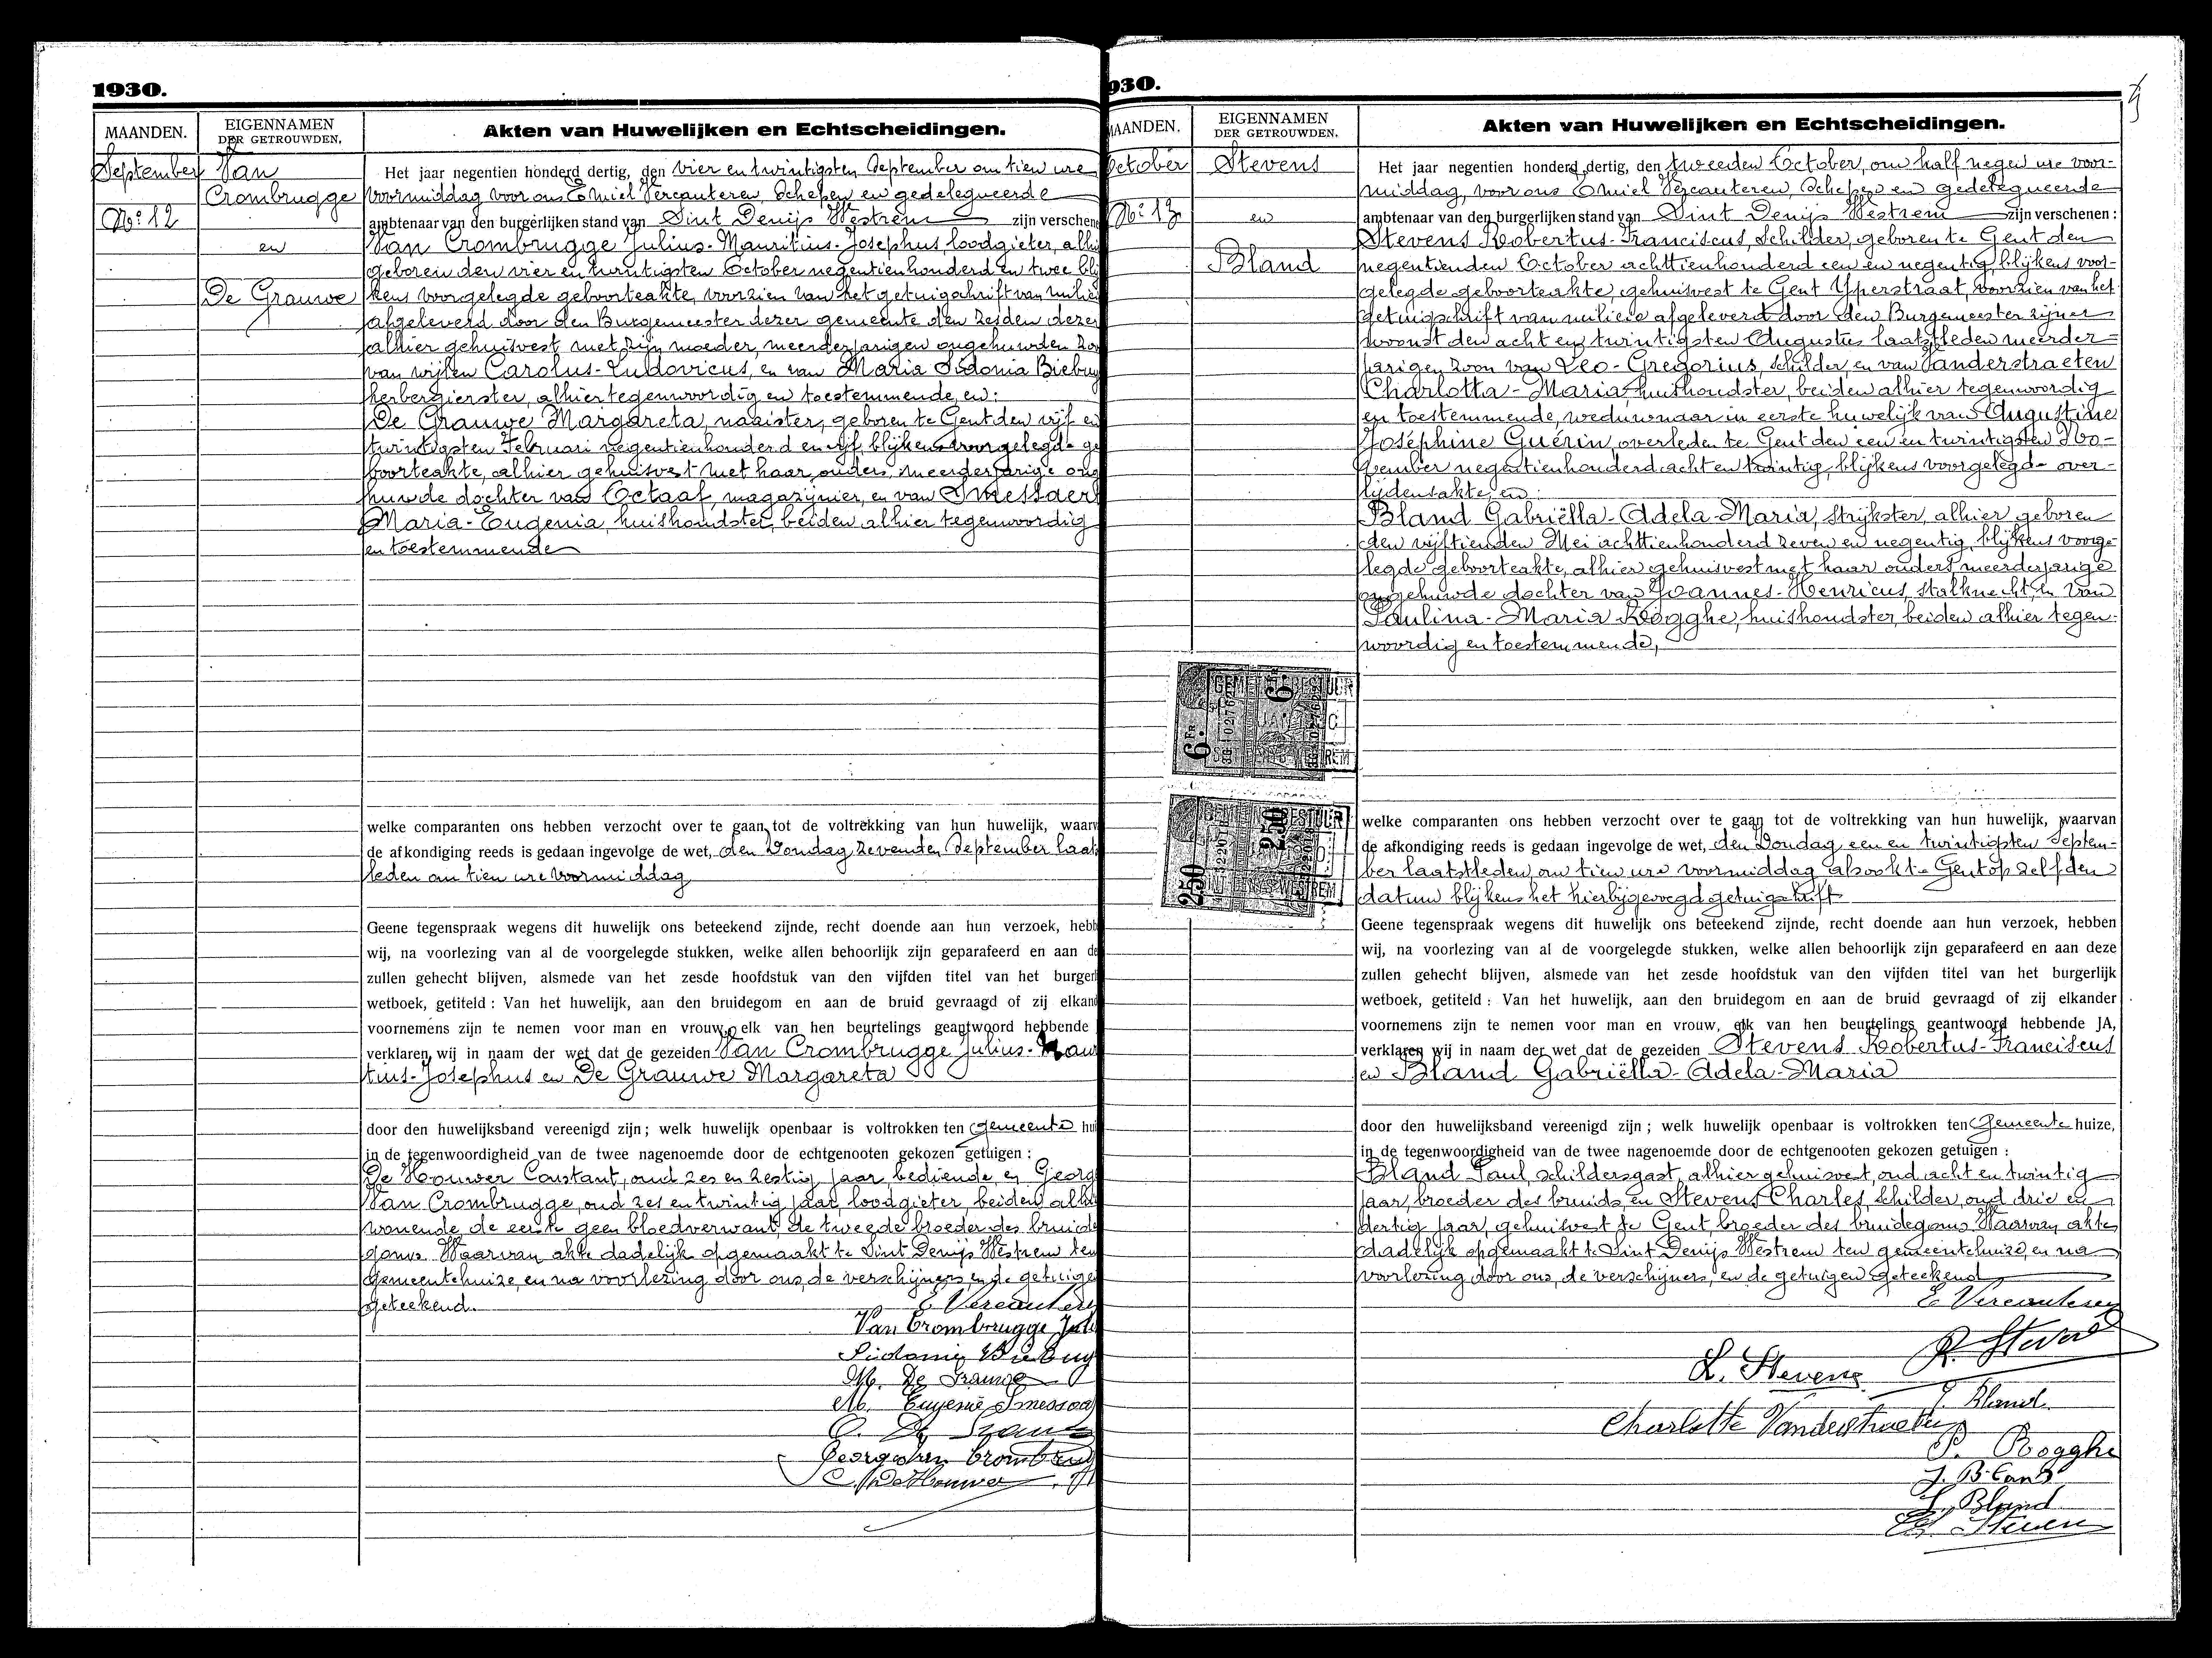 1930.
MAANDEN.
EIGENNAMEN
DER GETROUWDEN.
Akten van Huwelijken en Echtscheidingen.
September
No: 12
Van
Crombrugge
en
De Grauwe
Het jaar negentien honderd dertig, den vier en twintigsten September om tien ure
voormiddag voor ons Emiel Vercauteren, Schepen en gedelegueerde
ambtenaar van den burgerlijken stand van Sint Denijs Westrem zijn verschene
Van Crombrugge Julius-Mauritius-Josephus, loodgieter, alhi
geboren den vier en twintigsten October negentienhonderd en twee blij
kens voorgelegde geboorteakte, voorzien van het getuigschrift van milici
afgeleverd door den Burgemeester dezer gemeente den zesden dezer
alhier gehuisvest met zijn moeder, meerderjarigen ongehuwden zo
van wijlen Carolus-Ludovicus, en van Maria Sidonia Biebuy
herbergierster, alhier tegenwoordig en toestemmende, en:
De Grauwe Margareta, naaister, geboren te Gent den vijf en
twintigsten Februari negentienhonderd en vijf, blijkens voorgelegde ge
boorteakte, alhier gehuisvest met haar ouders, meerderjarige ong
huwde dochter van Octaaf, magazijnier, en van Smessaer
Maria-Eugenia, huishoudster, beiden alhier tegenwoordig
en toestemmende
welke comparanten ons hebben verzocht over te gaan tot de voltrekking van hun huwelijk, waarv
de afkondiging reeds is gedaan ingevolge de wet, den Zondag zevenden September laat
leden om tien ure voormiddag
Geene tegenspraak wegens dit huwelijk ons beteekend zijnde, recht doende aan hun verzoek, hebb
wij, na voorlezing van al de voorgelegde stukken, welke allen behoorlijk zijn geparafeerd en aan de
zullen gehecht blijven, alsmede van het zesde hoofdstuk van den vijfden titel van het burgerl
wetboek, getiteld : Van het huwelijk, aan den bruidegom en aan de bruid gevraagd of zij elkand
voornemens zijn te nemen voor man en vrouw, elk van hen beurtelings geantwoord hebbende
verklaren wij in naam der wet dat de gezeiden Van Crombrugge Julius-Mauri
tius-Josephus en De Grauwe Margareta
door den huwelijksband vereenigd zijn ; welk huwelijk openbaar is voltrokken ten Gemeente hui
in de tegenwoordigheid van de twee nagenoemde door de echtgenooten gekozen getuigen :
De Houwer Constant, oud zes en zestig jaar bediende en Georg
Van Crombrugge, oud zes en twintig jaar, loodgieter beiden alhi
wonende, de eerste geen bloedverwant, de tweede broeder des bruide
goms. Waarvan akte dadelijk opgemaakt te Sint Denijs Westrem ten
Gemeentehuize, en na voorlezing door ons, de verschijners en de getuige
geteekend.
E Vercautere
Van Crombrugge Jul
Sidonie Biebuy
M. De Grauwe
M. Eugenie Smessae
O. De Grauwe
Georges Van Crombrug
C. De Houwer
930.
MAANDEN.
EIGENNAMEN
DER GETROUWDEN.
Akten van Huwelijken en Echtscheidingen.
October
No: 13
Stevens
en
Bland
Het jaar negentien honderd dertig, den tweeden October, om half negen ure voor-
middag, voor ons Emiel Vercauteren, Schepen en gedelegueerde
ambtenaar van den burgerlijken stand van Sint Denijs Westrem zijn verschenen :
Stevens Robertus-Franciscus, Schilder, geboren te Gent den
negentienden October achttienhonderd een en negentig, blijkens voor-
gelegde geboorteakte, gehuisvest te Gent Yperstraat, voorzien van het
getuigschrift van milicie afgeleverd door den Burgemeester zijner
woonst den acht en twintigsten Augustus laatstleden meerder-
jarigen zoon van Leo-Gregorius, schilder, en van Vanderstraeten
Charlotta-Maria, huishoudster, beiden alhier tegenwoordig
en toestemmende, weduwnaar in eerste huwelijk van Augustine
Joséphine Guérin, overleden te Gent den een en twintigsten No-
vember negentienhonderd acht en twintig, blijkens voorgelegde over-
lijdensakte, en:
Bland Gabriëlla-Adela-Maria, Strijkster, alhier geboren
den vijftienden Mei achttienhonderd zeven en negentig, blijkens voorge-
legde geboorteakte, alhier gehuisvest met haar ouders meerderjarige
ongehuwde dochter van Joannes-Henricus, stalknecht, en van
Paulina-Maria Rogghe, huishoudster, beiden alhier tegen-
woordig en toestemmende,
6. Fr.
6.
250
250
welke comparanten ons hebben verzocht over te gaan tot de voltrekking van hun huwelijk, waarvan
de afkondiging reeds is gedaan ingevolge de wet, den Zondag een en twintigsten Septem-
ber laatstleden, om tien ure voormiddag, alsook te Gent op zelfden
datum blijkens het hierbijgevoegd getuigschrift
Geene tegenspraak wegens dit huwelijk ons beteekend zijnde, recht doende aan hun verzoek, hebben
wij, na voorlezing van al de voorgelegde stukken, welke allen behoorlijk zijn geparafeerd en aan deze
zullen gehecht blijven, alsmede van het zesde hoofdstuk van den vijfden titel van het burgerlijk
wetboek, getiteld : Van het huwelijk, aan den bruidegom en aan de bruid gevraagd of zij elkander
voornemens zijn te nemen voor man en vrouw, elk van hen beurtelings geantwoord hebbende JA,
verklaren wij in naam der wet dat de gezeiden Stevens Robertus-Franciscus
en Bland Gabriëlla-Adela-Maria
door den huwelijksband vereenigd zijn ; welk huwelijk openbaar is voltrokken ten Gemeente huize,
in de tegenwoordigheid van de twee nagenoemde door de echtgenooten gekozen getuigen :
Bland Paul, schildersgast, alhier gehuisvest, oud acht en twintig
jaar, broeder des bruids, en Stevens Charles, schilder, oud drie en
dertig jaar, gehuisvest te Gent, broeder des bruidegoms. Waarvan akte
dadelijk opgemaakt te Sint Denijs Westrem ten gemeentehuize, en na
voorlezing door ons, de verschijners, en de getuigen geteekend
E Vercauteren
R. Stevens
L. Stevens
G. Bland
Charlotte Vanderstraeten
P. Rogghe
J. Bland
P. Bland
Ch. Stevens